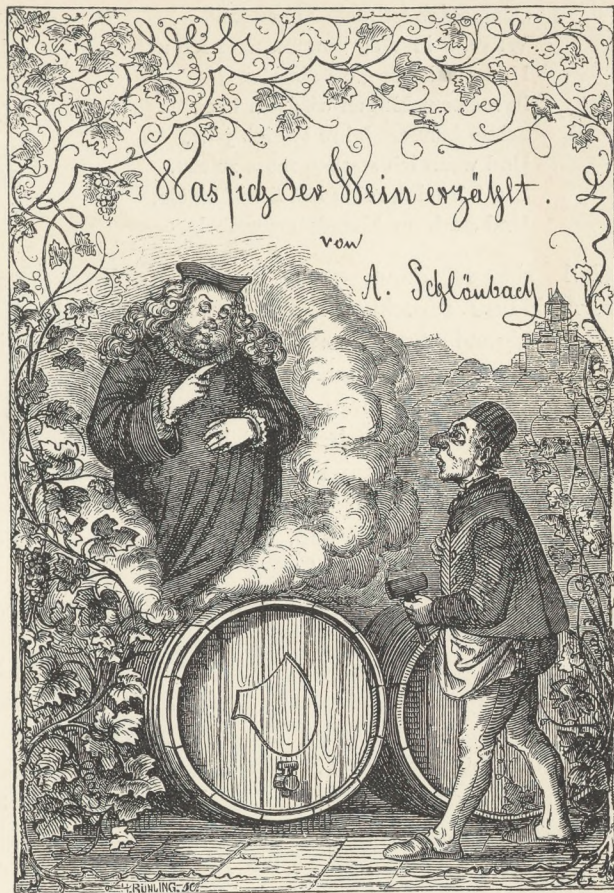 Was sich der Wein erzählt.
von
A. Schlönbach
H. RÜHLING. SC.